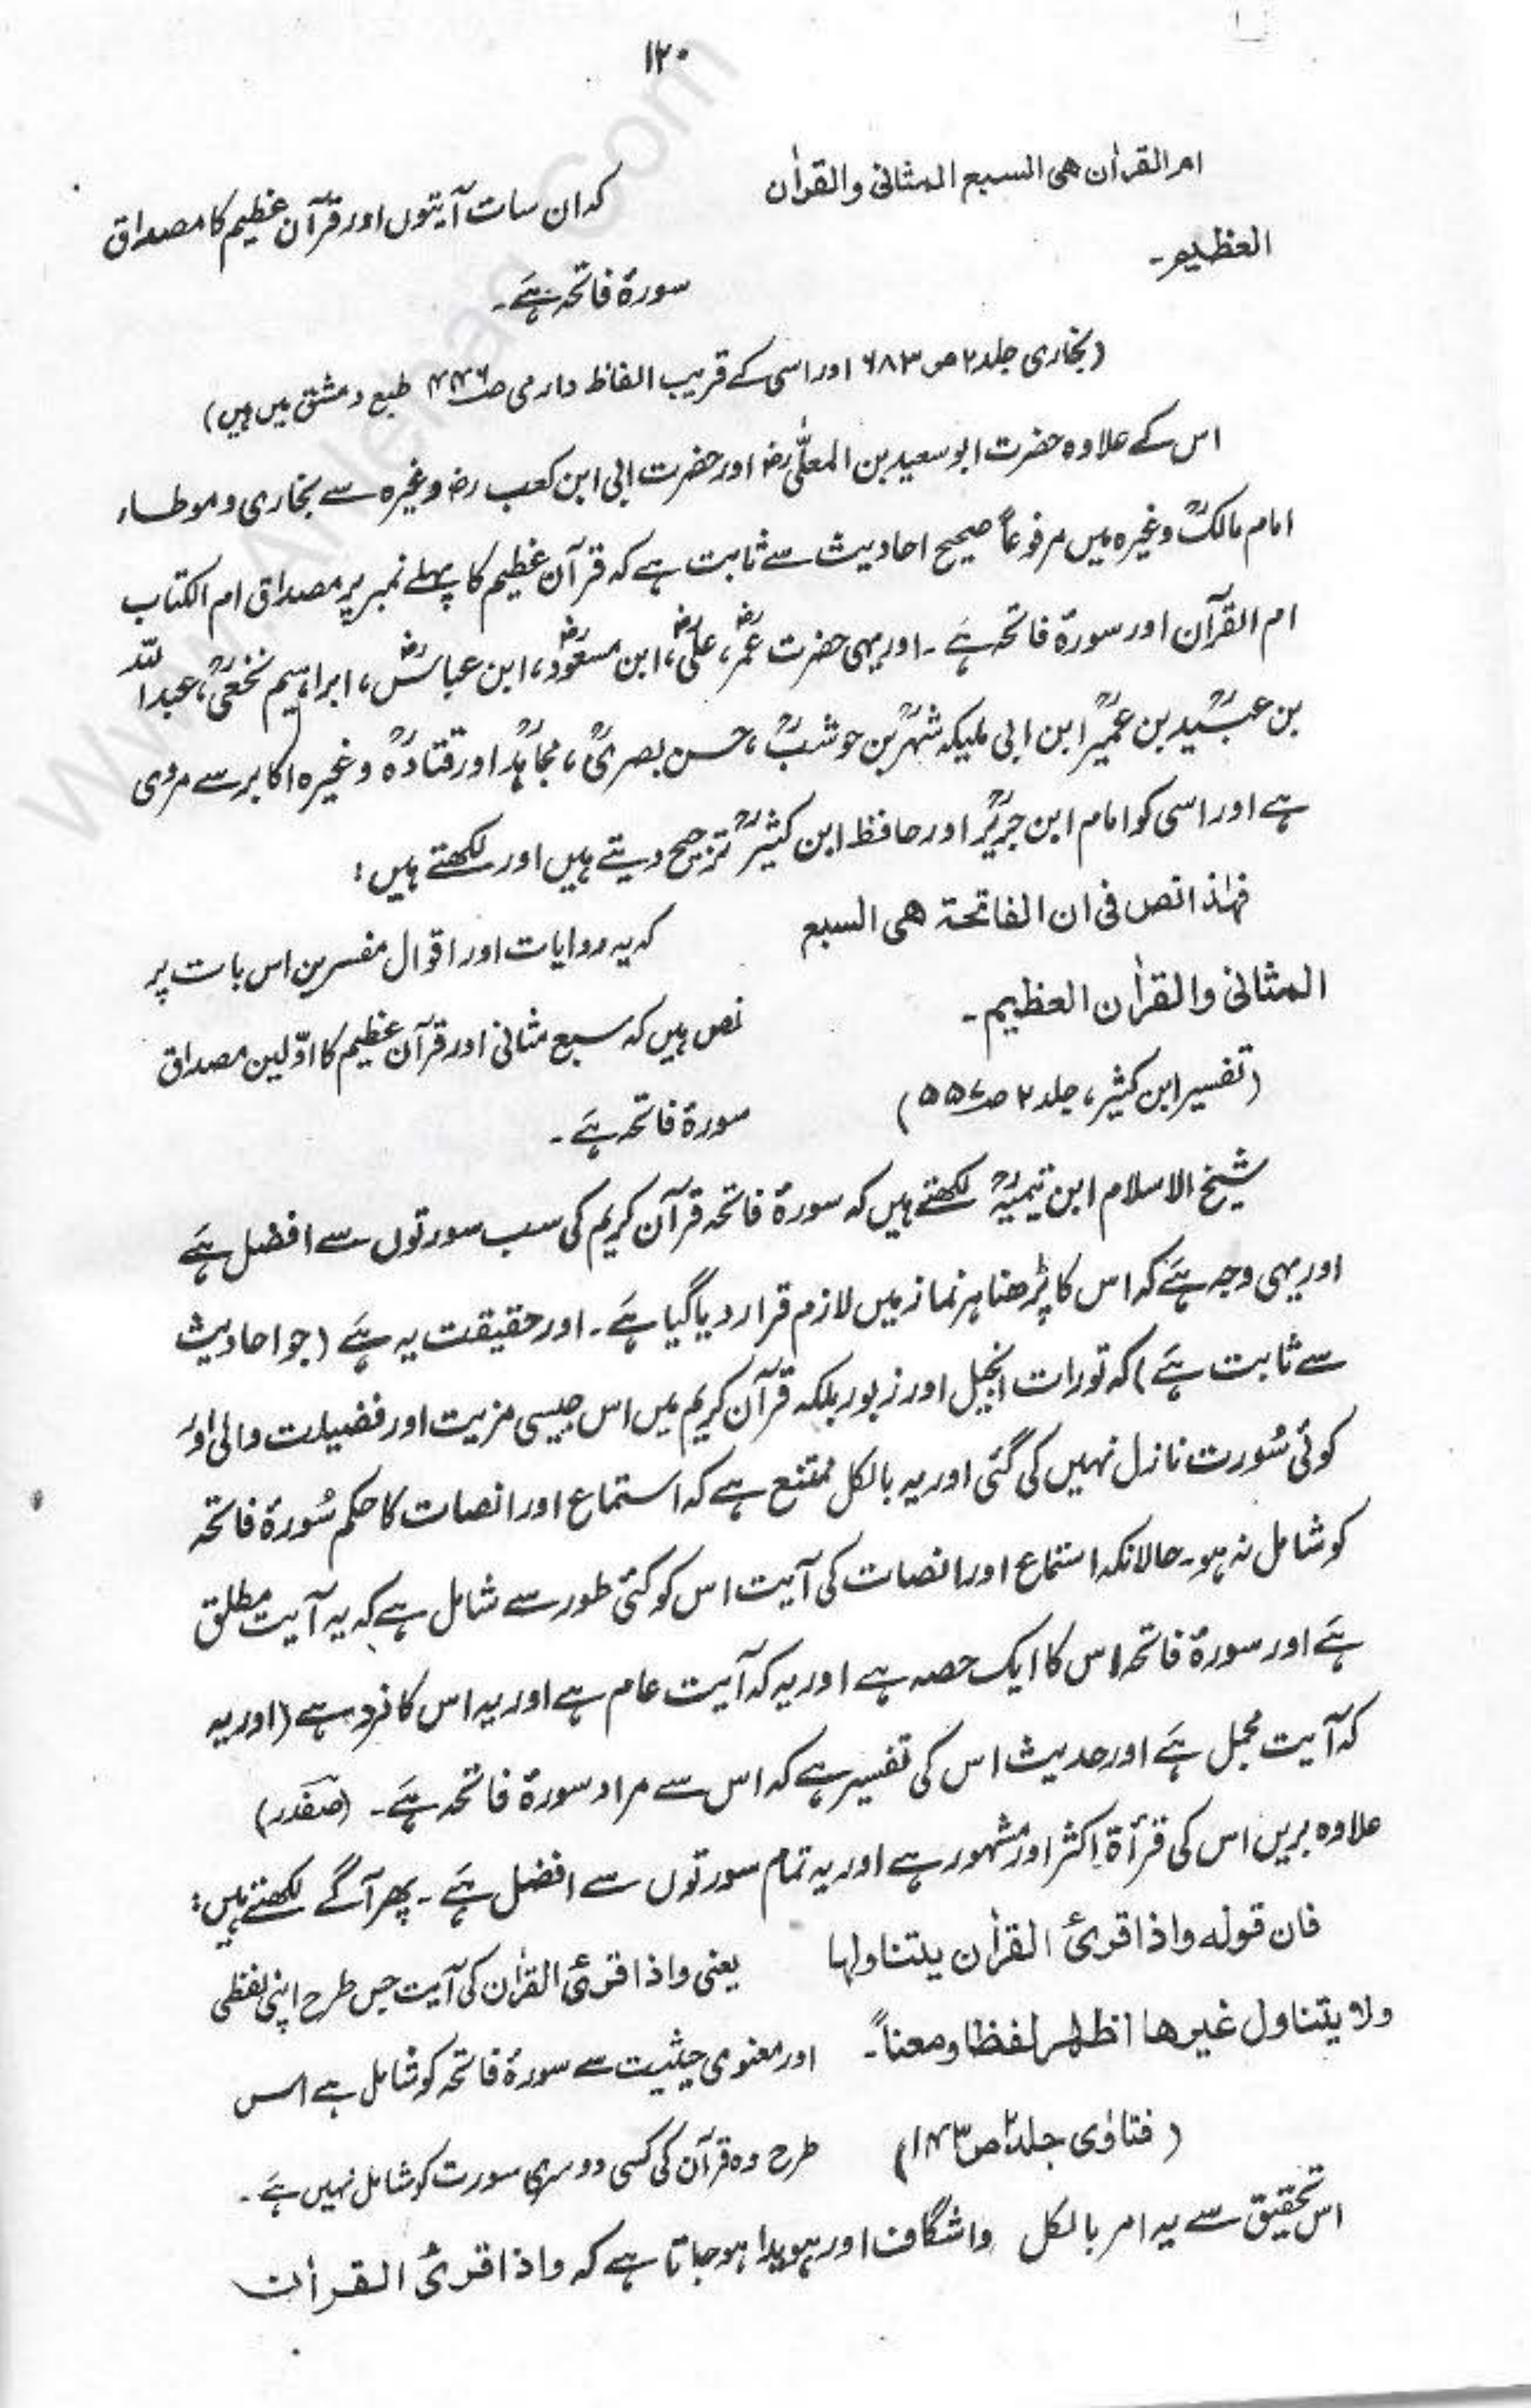 ۱۲۰
ام القراٰن هی السبع المثانی والقراٰن
العظیم۔
کہ ان سات آیتوں اور قرآن عظیم کا مصداق
سورۂ فاتحہ ہے۔
(بخاری جلد ۲ ص ۶۸۳ اور اسی کے قریب الفاظ دارمی ص ۴۴۶ طبع دمشق میں ہیں)
اس کے علاوہ حضرت ابو سعید بن المعلّٰیؓ اور حضرت ابی ابن کعبؓ وغیرہ سے بخاری و موطاء
امام مالکؒ وغیرہ میں مرفوعاً صحیح احادیث سے ثابت ہے کہ قرآن عظیم کا پہلے نمبر پر مصداق ام الکتاب
ام القرآن اور سورۂ فاتحہ ہے۔ اور یہی حضرت عمرؓ، علیؓ، ابن مسعودؓ، ابن عباسؓ، ابراہیم نخعیؒ، عبداللہ
بن عبیدؒ بن عمیرؒ ابن ابی ملیکہ شہرؒ بن حوشبؒ، حسن بصریؒ، مجاہدؒ اور قتادہؒ وغیرہ اکابر سے مروی
ہے اور اسی کو امام ابن جریرؒ اور حافظ ابن کثیرؒ ترجیح دیتے ہیں اور لکھتے ہیں:
فهٰذا نص فی ان الفاتحة هی السبع
المثانی والقراٰن العظیم۔
(تفسیر ابن کثیر، جلد ۲ ص ۵۵۷)
کہ یہ روایات اور اقوال مفسرین اس بات پر
نص ہیں کہ سبع مثانی اور قرآن عظیم کا اوّلین مصداق
سورۂ فاتحہ ہے۔
شیخ الاسلام ابن تیمیہؒ لکھتے ہیں کہ سورۂ فاتحہ قرآن کریم کی سب سورتوں سے افضل ہے
اور یہی وجہ ہے کہ اس کا پڑھنا ہر نماز میں لازم قرار دیا گیا ہے۔ اور حقیقت یہ ہے (جو احادیث
سے ثابت ہے) کہ تورات انجیل اور زبور بلکہ قرآن کریم میں اس جیسی مزیت اور فضیلت والی اور
کوئی سُورت نازل نہیں کی گئی اور یہ بالکل ممتنع ہے کہ استماع اور انصات کا حکم سُورۂ فاتحہ
کو شامل نہ ہو۔ حالانکہ استماع اور انصات کی آیت اس کو کئی طور سے شامل ہے کہ یہ آیت مطلق
ہے اور سورۂ فاتحہ اس کا ایک حصہ ہے اور یہ کہ آیت عام ہے اور یہ اس کا فرد ہے (اور یہ
کہ آیت مجمل ہے اور حدیث اس کی تفسیر ہے کہ اس سے مراد سورۂ فاتحہ ہے۔ (صفدر)
علاوہ بریں اس کی قرأۃ اکثر اور مشہور ہے اور یہ تمام سورتوں سے افضل ہے۔ پھر آگے لکھتے ہیں:
فان قوله واذا قرئ القراٰن یتناولها
ولا یتناول غیرها اظهر لفظا ومعناً۔
(فتاوٰی جلد ۲ ص ۱۴۳)
یعنی واذا قرئ القراٰن کی آیت جس طرح اپنی لفظی
اور معنوی حیثیت سے سورۂ فاتحہ کو شامل ہے اس
طرح وہ قرآن کی کسی دوسری سورت کو شامل نہیں ہے۔
اس تحقیق سے یہ امر بالکل واشگاف اور ہویدا ہو جاتا ہے کہ واذا قرئ القراٰن